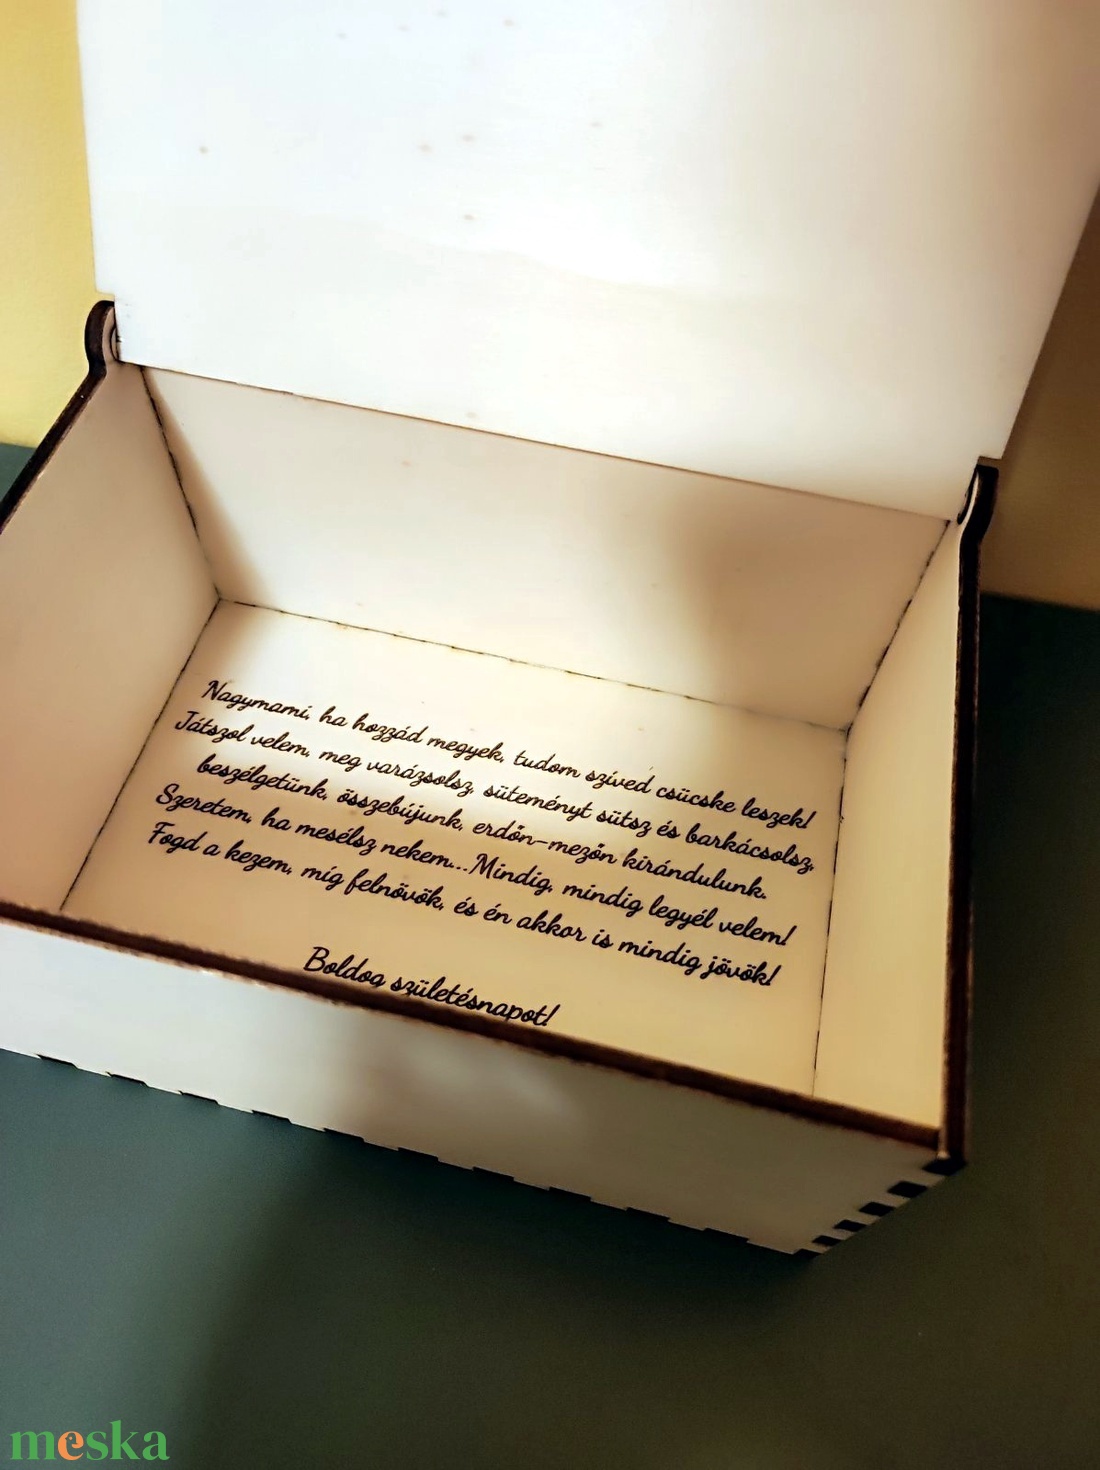 Nagymami, ha hozzád megyek, tudom szíved csücske leszek!
Játszol velem, meg varázsolsz, süteményt sütsz és barkácsolsz,
beszélgetünk, összebújunk, erdőn-mezőn kirándulunk.
Szeretem, ha mesélsz nekem...Mindig, mindig legyél velem!
Fogd a kezem, míg felnövök, és én akkor is mindig jövök!
Boldog születésnapot!
meska